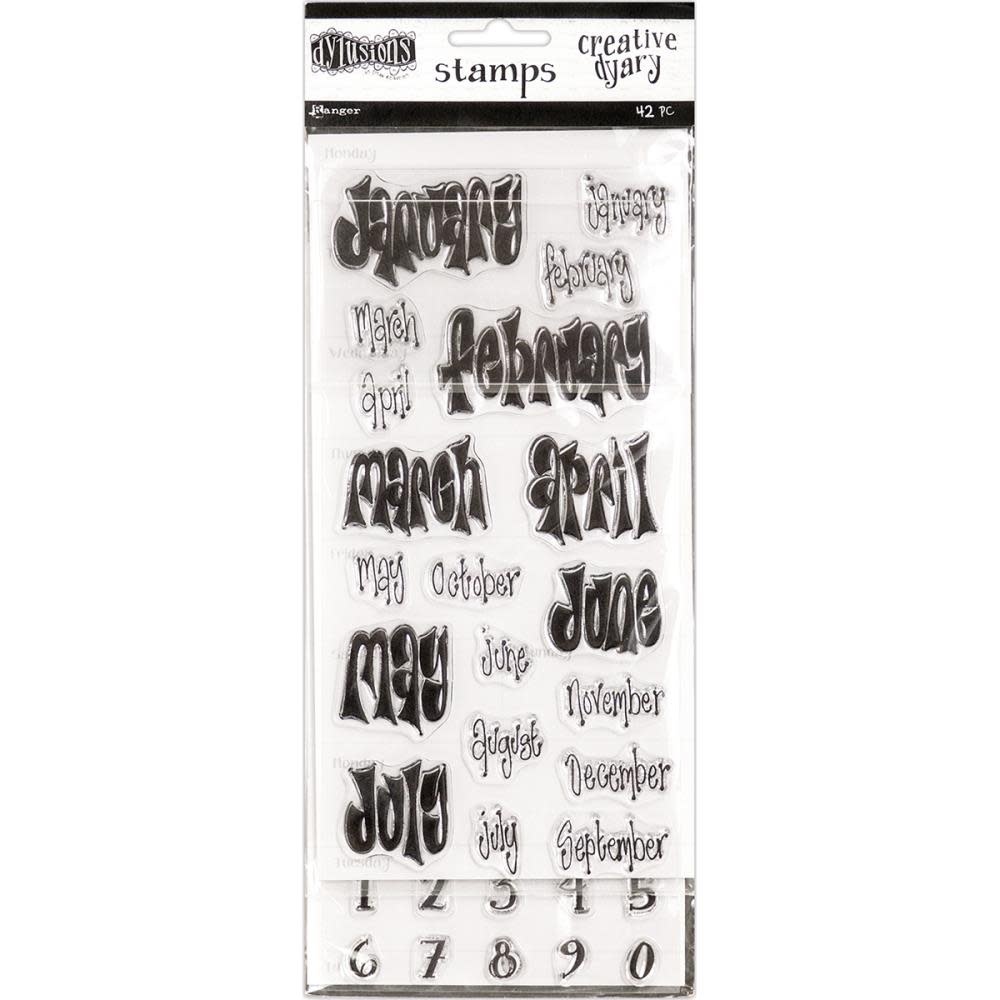 dylusions
stamps
creative
dyary
Ranger
42 PC
Monday
January
january
february
march
february
Wednesday
april
march
april
Friday
may
October
June
may
june
Sunday
November
august
Monday
December
July
july
September
Tuesday
1 2 3 4 5
6 7 8 9 0